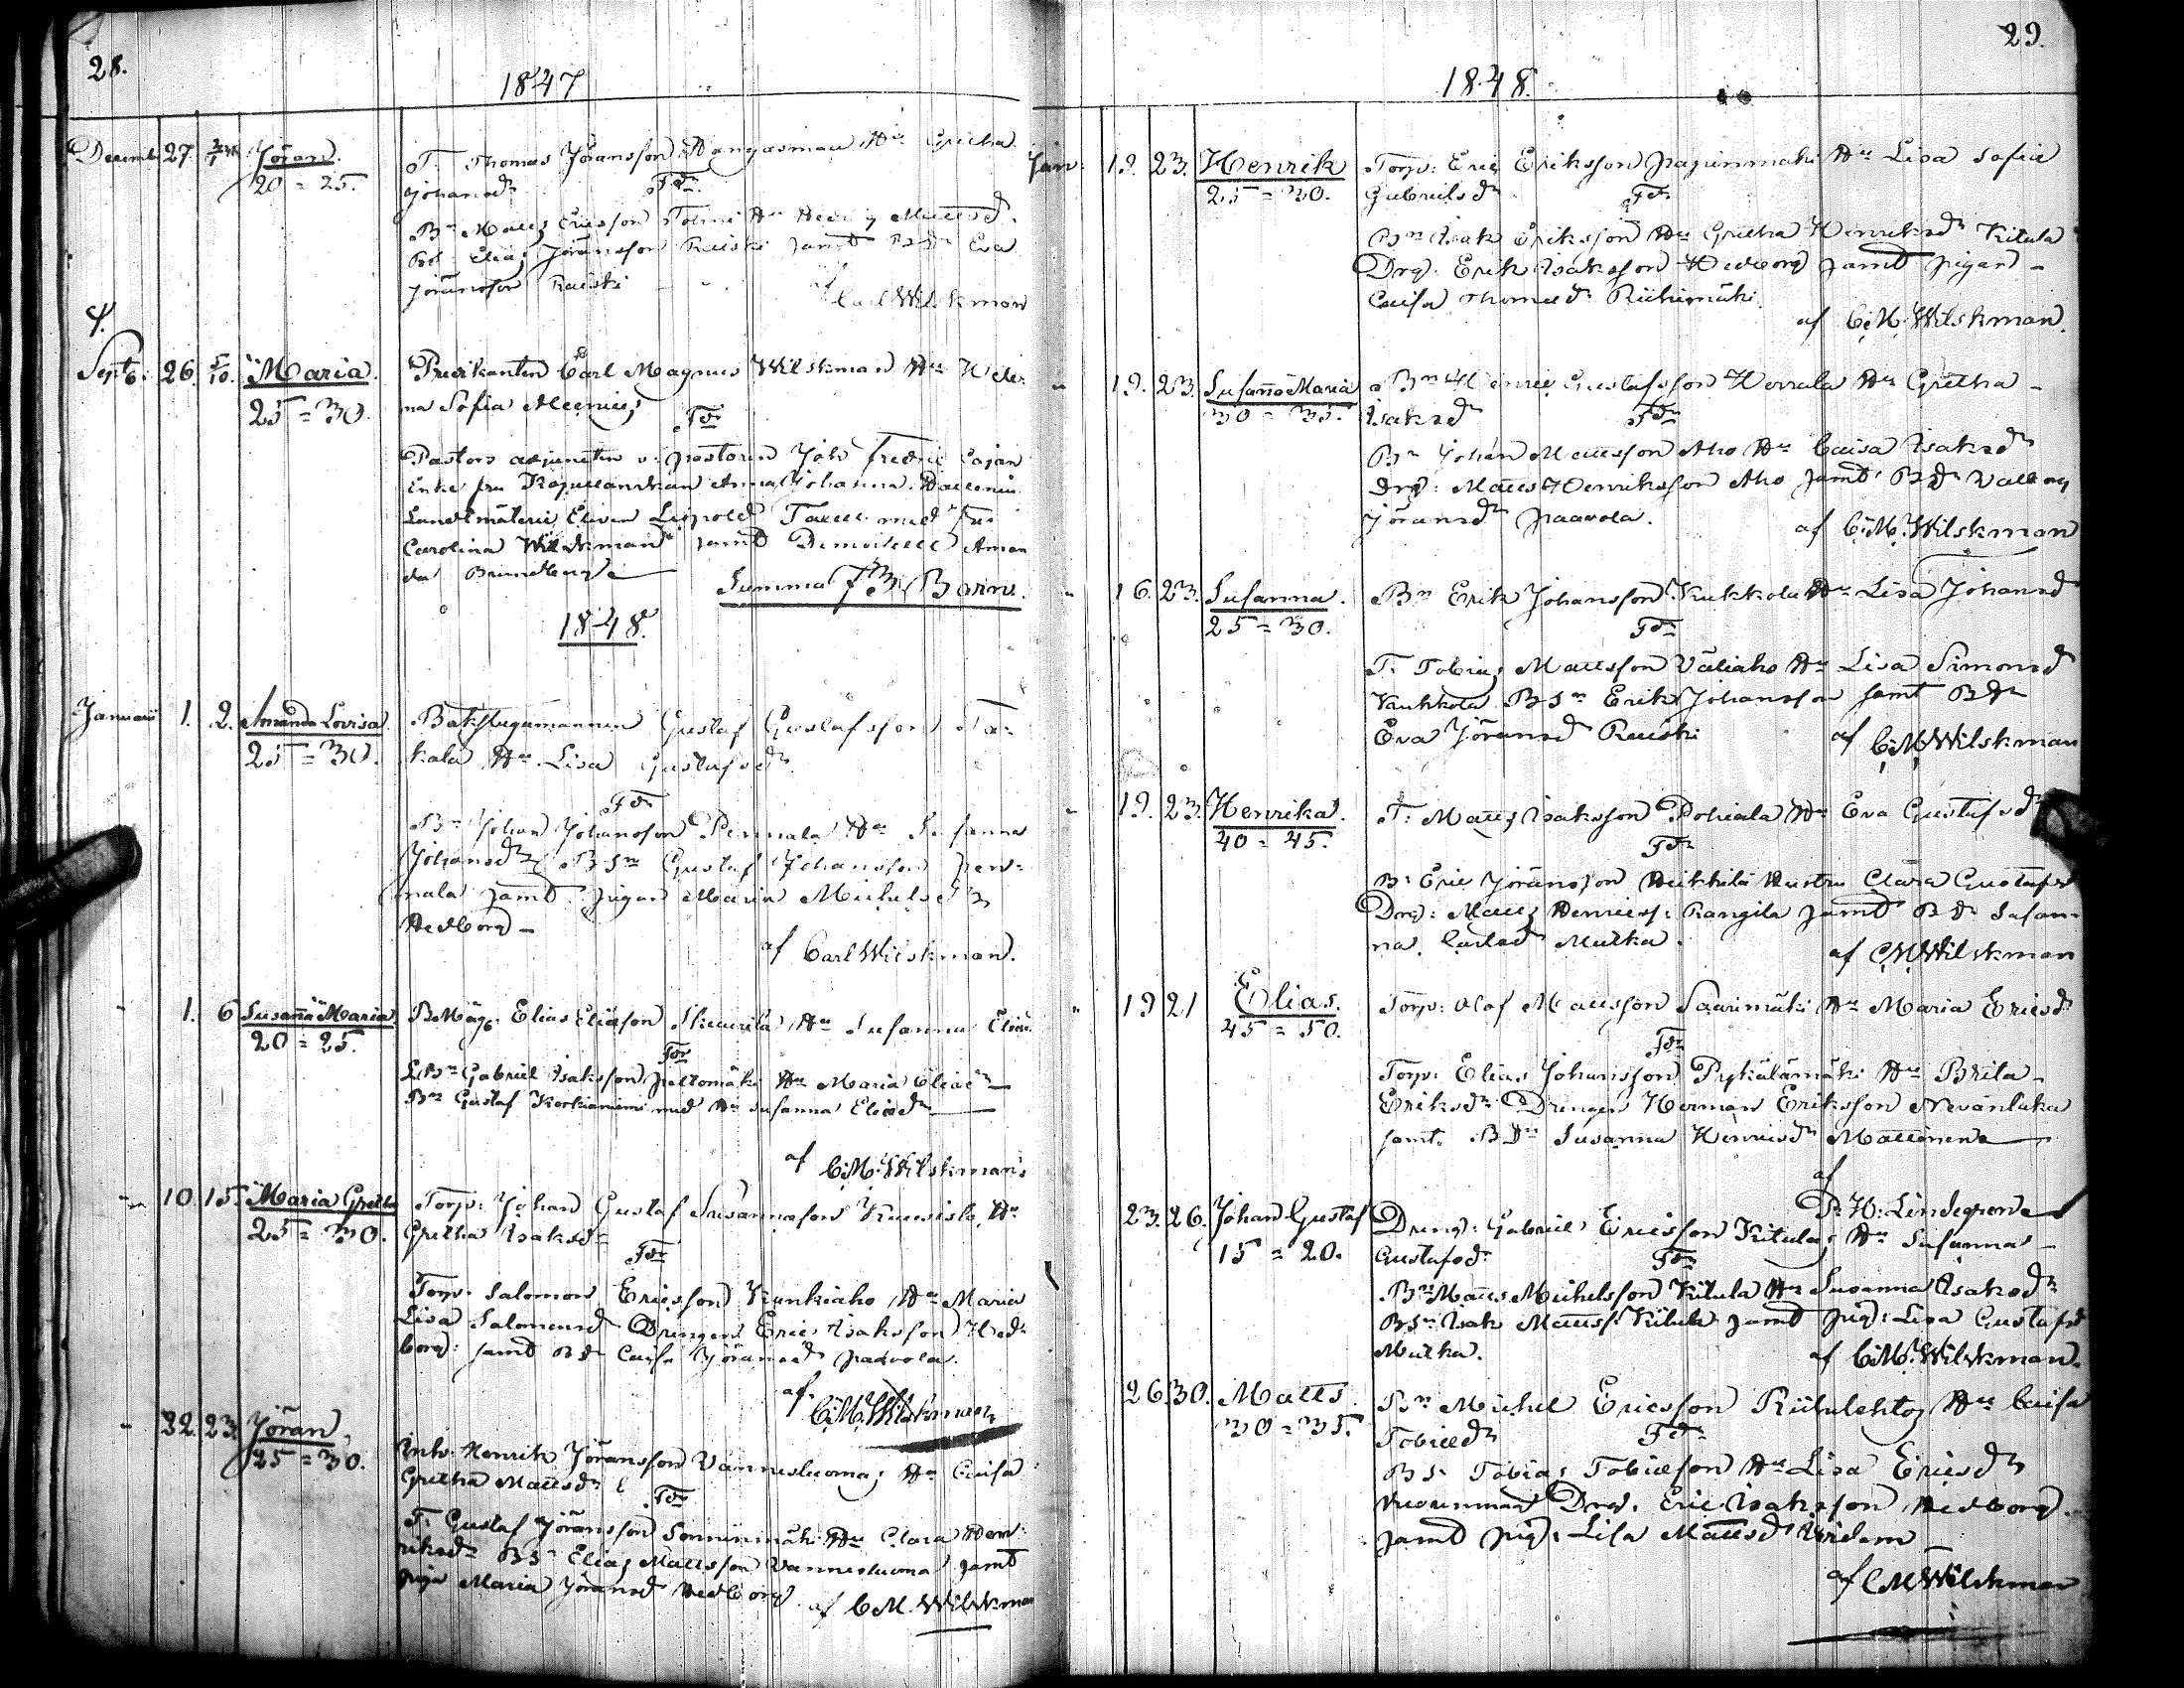 28.
1847
Decemb: 27. Jöran.
20 = 25.
T. Thomas Jöransson Hu Gretha
Johansdr
Fdr
Bn Matts Ericsson Hu Hedvig Mattsd.
Bs Elias Jöransson Rauski jamt Bdr Eva
Jöransson Rauski
Carl Wilskman
Septb: 26. 5/10. Maria.
25 = 30.
Predikanten Carl Magnus Wilskman Hu Hele-
na Sofia
Fdr
Pastors adjuncten v. pastoren Joh: Fredric Cajan
Enke fru Kapellanskan Anna Johanna
Landtmäteri Eleven Leopold med fru
Carolina Wilskman jamt Demoiselle Aman
da
Summa 73 Barn.
1848.
Januari 1. 2. Amanda Lovisa.
25 = 30.
Gustaf Gustafsson Ta-
kala Hu Lisa Gustafsdr
Fdr
Bn Johan Johansson Pernnala Hu Susanna
Johansdr Bsn Gustaf Johansson Pern-
nala jamt pigan Maria Michelsdr
Hedborg
af Carl Wilskman.
1. 6 Susanna Maria.
20 = 25.
BMåg: Elias Eliasson Skuurila Hu Susanna Elias
Fdr
LBn Gabriel Isaksson Peltomäki Hu Maria Eliasdr
Bn Gustaf Korkianiemi med Hu Susanna Eliasdr
af C:M: Wilskman
10. 15. Maria Gretha
25 = 30.
Torp: Johan Gustaf Susannason Kuusisto, Hu
Gretha Isaksdr
Fdr
Torp: Salomon Ericsson Kunkiaho, Hu Maria
Lisa Salomonsd Drengen Eric Isaksson Hed-
borg: samt Bdr Caisa Jöransdr Paavola.
af C:M: Wilskman
22. 23. Jöran.
25 = 30.
Inh: Henrik Jöransson Vannesluoma, Hu Caisa
Gretha Mattsdr
Fdr
T. Gustaf Jöransson Sonninmäki Hu Clara Hen-
riksdr Bsn Elias Mattsson Vannesluoma jamt
piga Maria Jöransd Hedborg
af C M. Wilskman
29.
1848.
Jan: 19. 23. Henrik
25 = 30.
Torp: Eric Eriksson Hu Lisa Sofia
Gabrielsdr
Fdr
Bn Isak Eriksson Hu Gretha Henriksdr Kitula
Drg: Erik Isaksson Hedborg jamt pigan
Caisa Thomasdr Riihimäki
af C:M: Wilskman.
19. 23. Susanna Maria
30 = 35.
Bn Henric Gustafsson Herrala Hu Gretha
Isaksdr
Fdr
Bn Johan Mattsson Aho Hu Caisa Isaksdr
Drg: Matts Henriksson Aho jamt Bdr Valborg
Jöransdr Paavola.
af C:M: Wilskman
16. 23. Susanna.
25 = 30.
Bn Erik Johansson Kukkola Hu Lisa Johansd
Fdr
T. Tobias Mattsson Väliaho Hu Lisa Simonsd
Kukkola Bsn Erik Johansson jamt Bdr
Eva Jöransd Rauski
af C:M: Wilskman
19. 23. Henrika.
40 = 45.
T. Matts Isaksson Pohiala Hu Eva Gustafsdr
Fdr
B: Eric Jöransson Heikkilä Hustru Clara Gustafsd
Drg: Matts Henricss: Kangila jamt Bdr Susan-
na Carlsdr Mutka.
af C M Wilskman
19 21 Elias.
45 = 50.
Torp: Olof Mattsson Saarimäki Hu Maria Ericsd
Fdr
Torp: Elias Johansson Pykälämäki Hu Brita
Eriksdr Drengen Herman Eriksson Nevanluka
samt. Bdr Susanna Henricsdr Mattonen
af
D: H: Lindegren
23. 26. Johan Gustaf
15 = 20.
Dreng: Gabriel Ericsson Kitula, Hu Susanna
Gustafsdr
Fdr
Bn Matts Michelsson Kitula Hu Susanna Isaksdr
Bsn Isak Mattss: Kitula jamt Pig: Lisa Gustafsd
Mutka.
af C:M: Wilskman.
26. 30. Matts
30 = 35.
Bn Michel Ericsson Riitulehto, Hu Caisa
Tobiedr
Fdr
Bs: Tobias Tobiesson Hu Lisa Ericsdr
Drg. Eric Isaksson Hedborg.
jamt pig: Lisa Mattsd
af C M Wilskman